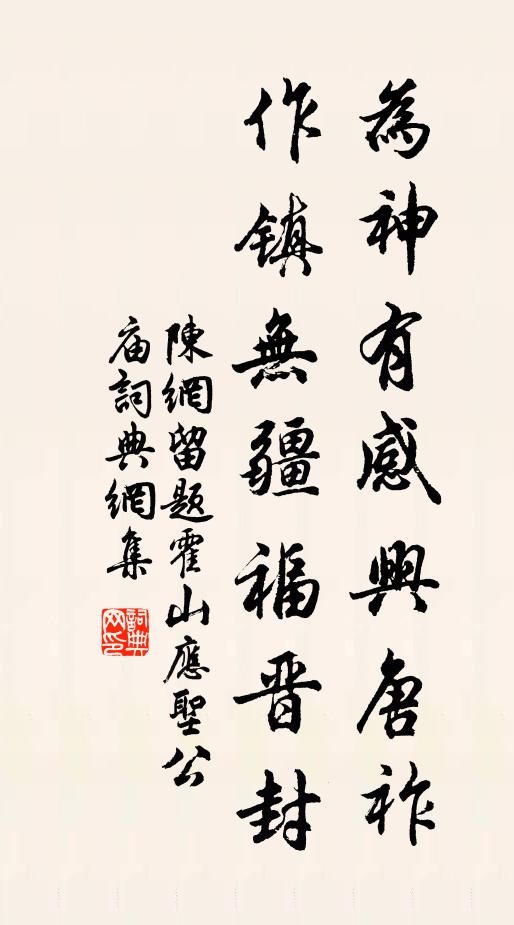 為神有感興唐祚
作鎮無疆福晋封
陳網留題霍山應聖公
庙詞典網集
詞典网印